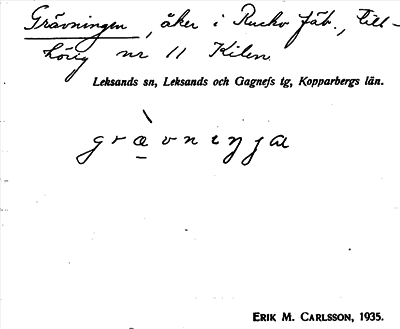 Grävningen, åker i Rucko fäb., till-
hörig nr 11 Kilen.
Leksands sn, Leksands och Gagnefs tg, Kopparbergs län.
græ̀vniŋa
ERIK M. CARLSSON, 1935.